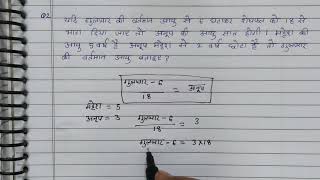 Q2
यदि गुलनार की वर्तमान आयु से 6 घटाकर शेषफल को 18 से
भाग दिया जाए तो अनूप की आयु ज्ञात होगी। महेश की
आयु 5 वर्ष है अनूप महेश से 2 वर्ष छोटा है तो गुलनार
की वर्तमान आयु बताइए?
गुलनार - 6 / 18 = अनूप
महेश = 5
अनूप = 3
गुलनार - 6 / 18 = 3
गुलनार - 6 = 3×18